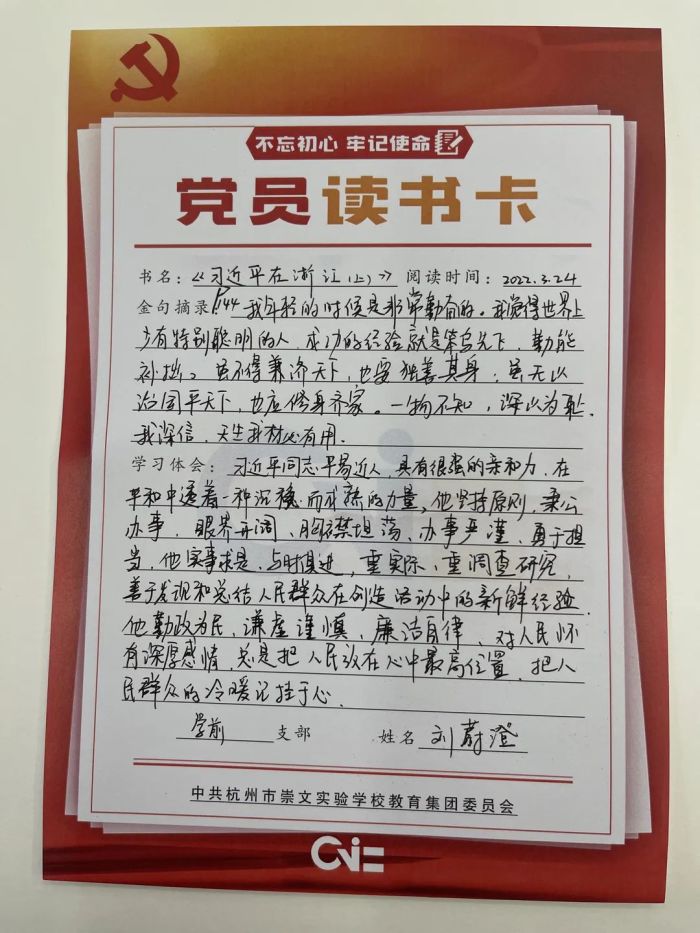 不忘初心 牢记使命
党员读书卡
书名：《习近平在浙江（上）》 阅读时间：2022.3.24
金句摘录：P144 我年轻的时候是非常勤奋的。我觉得世界上
少有特别聪明的人，成功的经验就是笨鸟先飞，勤能
补拙。虽不得兼济天下，也要独善其身；虽无以
治国平天下，也应修身齐家。一物不知，深以为耻。
我深信，天生我材必有用。
学习体会：习近平同志平易近人，具有很强的亲和力，在
平和中透着一种沉稳而成熟的力量。他坚持原则，秉公
办事，眼界开阔，胸襟坦荡，办事严谨，勇于担
当，他实事求是，与时俱进，重实际、重调查研究，
善于发现和总结人民群众在创造活动中的新鲜经验。
他勤政为民、谦虚谨慎，廉洁自律，对人民怀
有深厚感情，总是把人民放在心中最高位置，把人
民群众的冷暖记挂于心。
学前 支部 姓名 刘蔚澄
中共杭州市崇文实验学校教育集团委员会